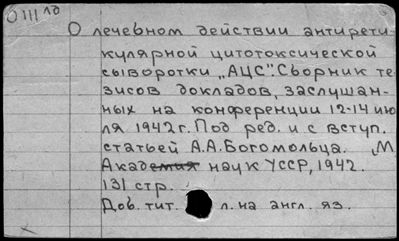 О III лд
О лечебном действии антирети-
кулярной цитотоксической
сыворотки „АЦС". Сборник те-
зисов докладов, заслушан-
ных на конференции 12-14 ию
ля 1942 г. Под ред. и с вступ.
статьей А.А. Богомольца. М.
Академия наук УССР, 1942.
131 стр.
Доб. тит. л. на англ. яз.